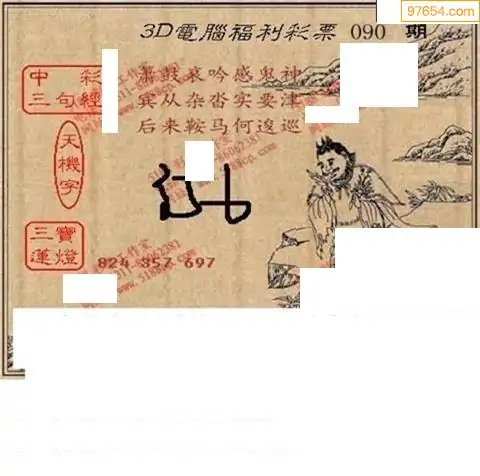 97654.com
3D電腦福利彩票 090 期
中 彩
三句經
簫鼓哀吟感鬼神
宾从杂沓实要津
后来鞍马何逡巡
天機字
三寶
蓮燈
824 357 697